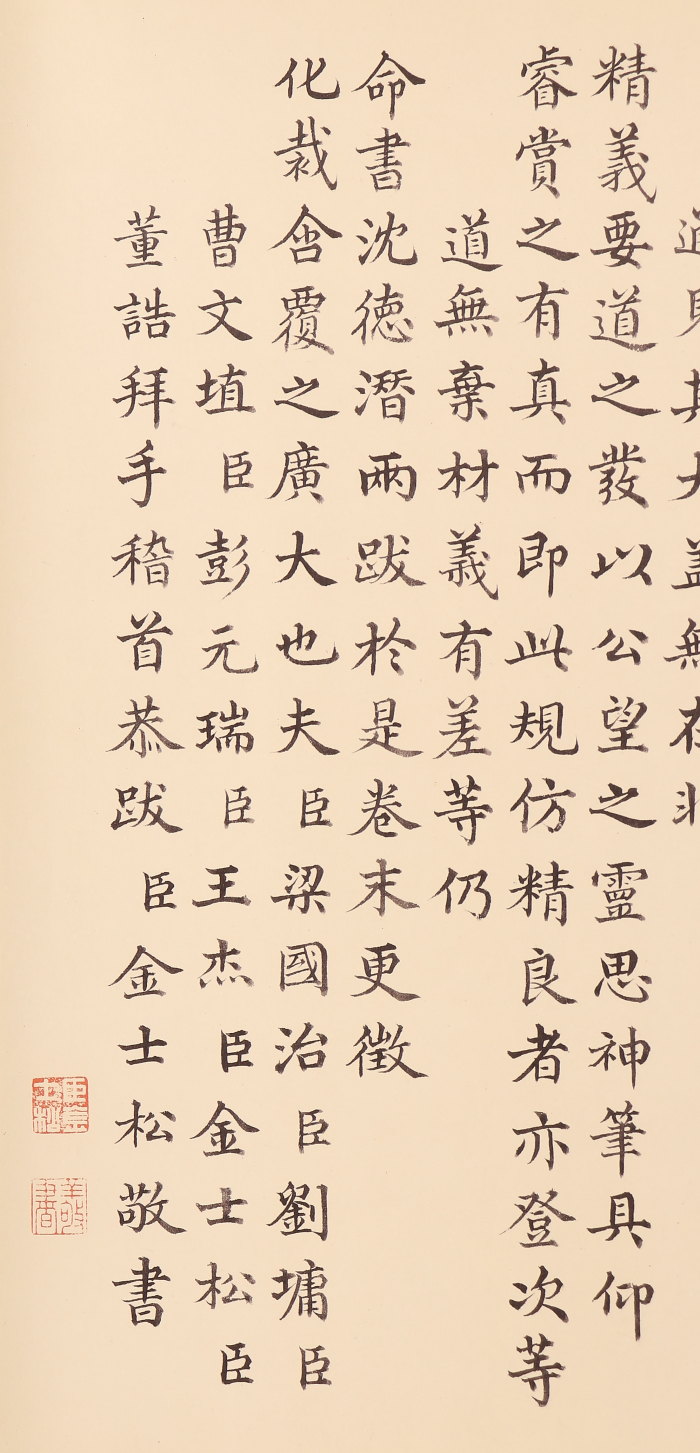 道見其大蓋無存非
精義要道之發以公望之靈思神筆具仰
睿賞之有真而即此規仿精良者亦登次等
道無棄材義有差等仍
命書沈德潛兩跋於是卷末更徵
化裁含覆之廣大也夫臣梁國治臣劉墉臣
曹文埴臣彭元瑞臣王杰臣金士松臣
董誥拜手稽首恭跋臣金士松敬書
臣金士松
敬書